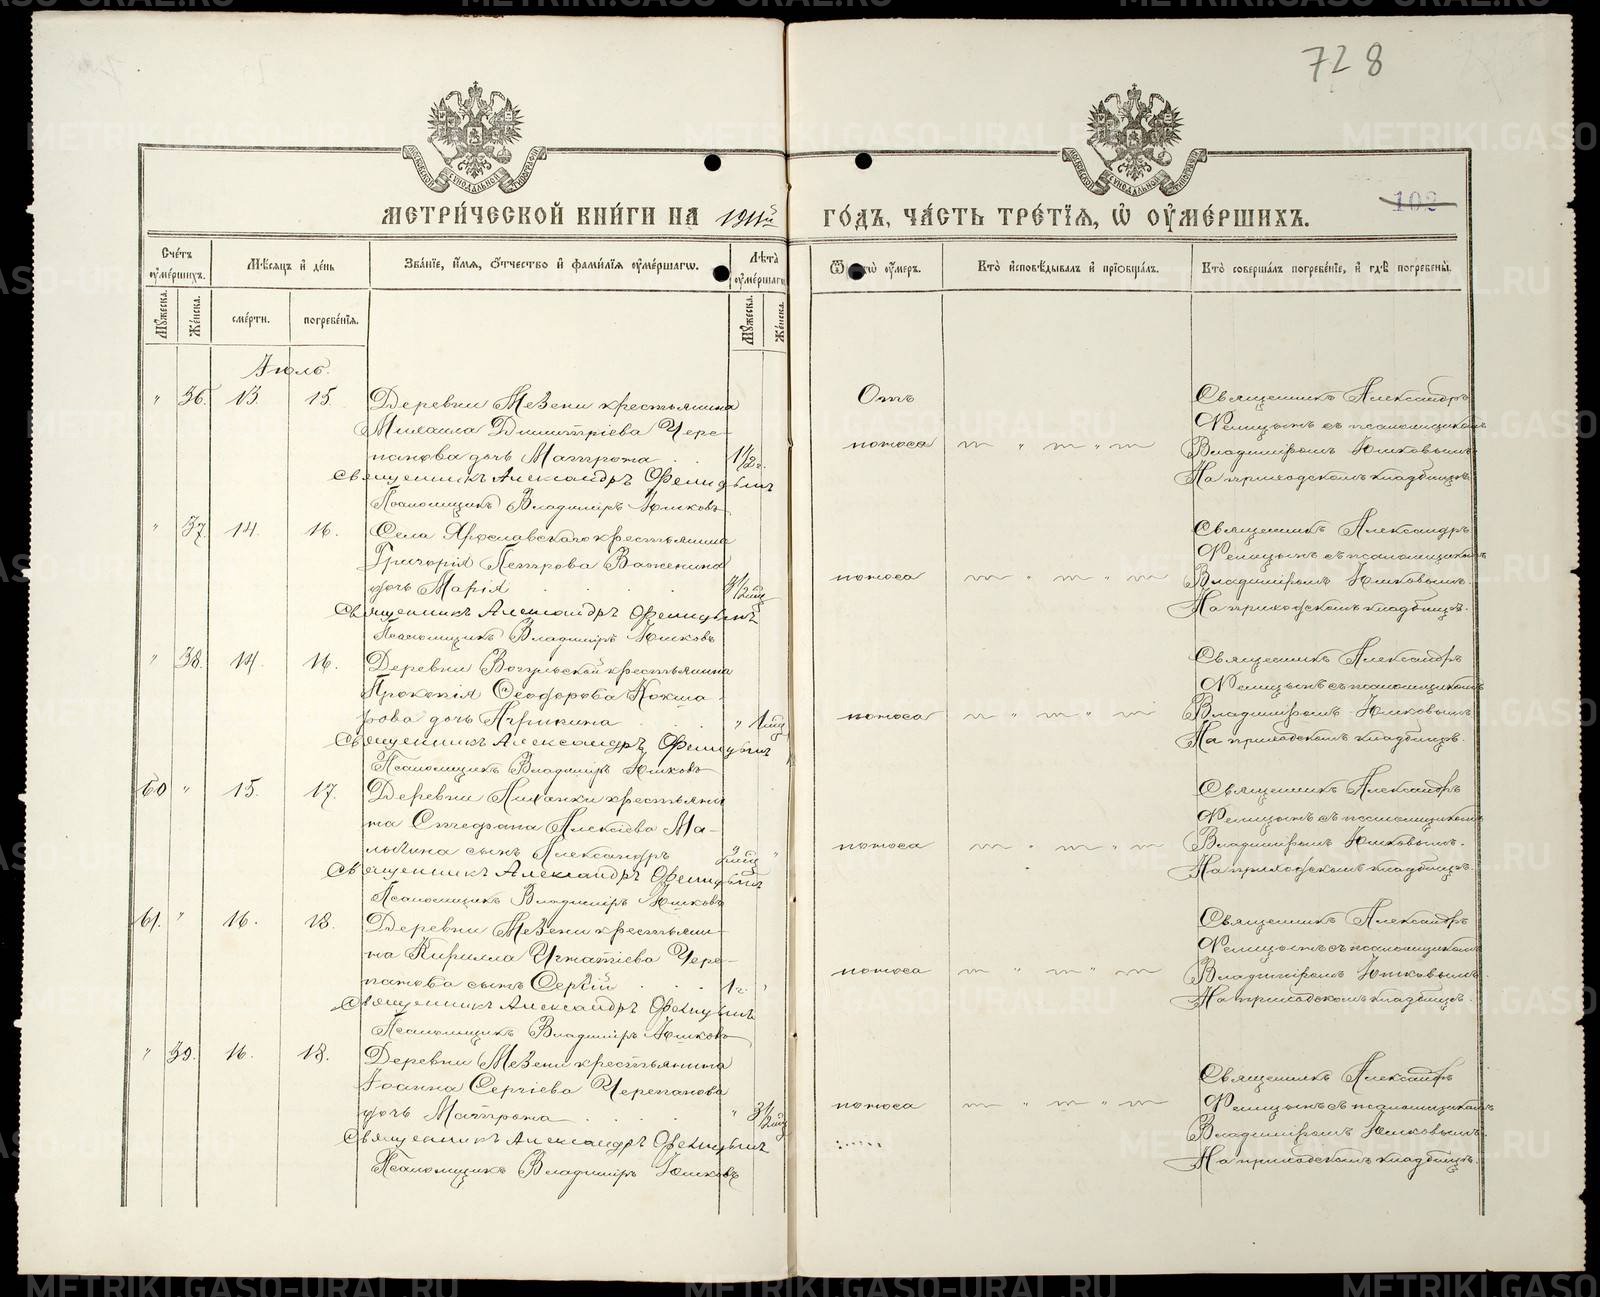 728
102
МЕТРИЧЕСКОЙ КНИГИ НА 1911й ГОДЪ, ЧАСТЬ ТРЕТІЯ, Ѡ ОУМЕРШИХЪ.
Счетъ оумершихъ.
Мѣсяцъ и день
Званіе, имя, отчество и фамилія оумершагѡ.
Лѣта оумершагѡ
Ѿ чегѡ оумеръ.
Кто исповѣдывалъ и пріобщалъ.
Кто совершалъ погребеніе, и гдѣ погребены.
Мужеска.
Женска.
смерти.
погребенія.
Мужеска.
Женска.
Іюль.
" 36. 13 15. Деревни Мезени крестьянина
Михаила Димитріева Чере-
панова дочь Матрона 1½ г.
Священникъ Александръ Феницынъ
Псаломщикъ Владиміръ Юшковъ
Отъ
поноса
Священникъ Александръ
Феницынъ съ псаломщикомъ
Владиміромъ Юшковымъ.
На приходскомъ кладбищѣ.
" 37. 14. 16. Села Ярославскаго крестьянина
Григорія Петрова Важенина
дочь Марія
Священникъ Александръ Феницынъ
Псаломщикъ Владиміръ Юшковъ
поноса
Священникъ Александръ
Феницынъ съ псаломщикомъ
Владиміромъ Юшковымъ.
На приходскомъ кладбищѣ.
" 38. 14. 16. Деревни Вогульской крестьянина
Прокопія Ѳеодорова Кокша-
рова дочь " 1 мѣц
Священникъ Александръ Феницынъ
Псаломщикъ Владиміръ Юшковъ
поноса
Священникъ Александръ
Феницынъ съ псаломщикомъ
Владиміромъ Юшковымъ
На приходскомъ кладбищѣ.
60 " 15. 17. Деревни крестьяни-
на Стефана Алексіева Ма-
лыгина сынъ Александръ
Священникъ Александръ Феницынъ
Псаломщикъ Владиміръ Юшковъ
поноса
Священникъ Александръ
Феницынъ съ псаломщикомъ
Владиміромъ Юшковымъ.
На приходскомъ кладбищѣ.
61. " 16. 18. Деревни Мезени крестьяни-
на Кирилла Игнатіева Чере-
панова сынъ Сергій 1 г. "
Священникъ Александръ Феницынъ
Псаломщикъ Владиміръ Юшковъ
поноса
Священникъ Александръ
Феницынъ съ псаломщикомъ
Владиміромъ Юшковымъ.
На приходскомъ кладбищѣ.
" 39. 16. 18. Деревни Мезени крестьянина
Іоанна Сергіева Черепанова
дочь Матрона " 3½ мѣц
Священникъ Александръ Феницынъ
Псаломщикъ Владиміръ Юшковъ
поноса
Священникъ Александръ
Феницынъ съ псаломщикомъ
Владиміромъ Юшковымъ.
На приходскомъ кладбищѣ.
METRIKI.GASO-URAL.RU